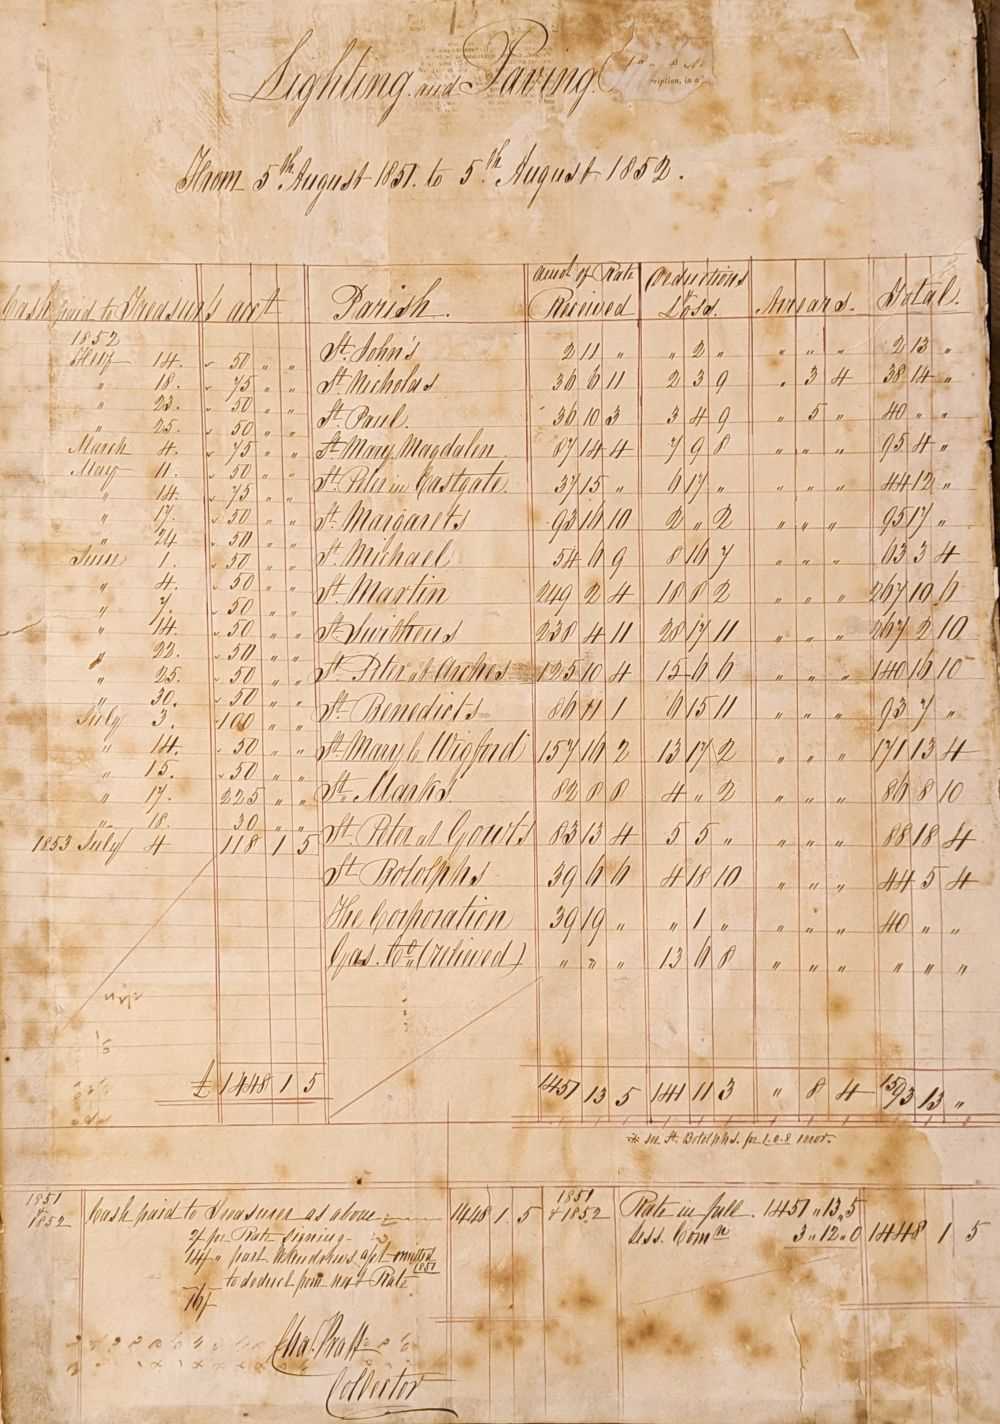 Lighting and Paving.
ription, in a
From 5th August 1851. to 5th August 1852.
Cash paid to Treasurer's acct
1852
Feby 14. " 50 " "
" 18. " 75 " "
" 23. " 50 " "
" 25. " 50 " "
March 4. " 75 " "
May 11. " 50 " "
" 14. " 75 " "
" 17. " 50 " "
" 24. " 50 " "
June 1. " 50 " "
" 4. " 50 " "
" 7. " 50 " "
" 14. " 50 " "
" 22. " 50 " "
" 25. " 50 " "
" 30. " 50 " "
July 3. " 100 " "
" 14. " 50 " "
" 15. " 50 " "
" 17. 225 " "
" 18. 30 " "
1853 July 4 118 1 5
£ 1448 1 5
Parish. Amot of Rate Received Deductions & Loss. Arrears. Total.
St. John's 2 11 " " 2 " " " " 2 13 "
St. Nicholas 36 6 11 2 3 9 " 3 4 38 14 "
St. Paul. 36 10 3 3 4 9 " 5 " 40 " "
St Mary Magdalen. 87 14 4 7 9 8 " " " 95 4 "
St. Peter in Eastgate. 37 15 " 6 17 " " " " 44 12 "
St. Margarets 93 16 10 2 " 2 " " " 95 17 "
St. Michael 54 6 9 8 16 7 " " " 63 3 4
St. Martin 249 2 4 18 8 2 " " " 267 10 6
St. Swithens 238 4 11 28 17 11 " " " 267 2 10
St. Peter at Arches 125 10 4 15 6 6 " " " 140 16 10
St. Benedicts 86 11 1 6 15 11 " " " 93 7 "
St. Mary le Wigford 157 16 2 13 17 2 " " " 171 13 4
St. Marks. 82 8 8 4 " 2 " " " 86 8 10
St. Peter at Gowts 83 13 4 5 5 " " " " 88 18 4
St. Botolphs 39 6 6 4 18 10 " " " 44 5 4
The Corporation 39 19 " " 1 " " " " 40 " "
Gas. Co. (relieved) " " " 13 6 8 " " " " " "
1451 13 5 141 11 3 " 8 4 1593 13 "
see St. Botolphs. for 1.0.8 mor.
1851 & 1852 Cash paid to Treasurer as above 1448 1 5
2/ for Rate signing
14/ " part
to deduct from next Rate
1851
16/
Chas. Pratt
Collector
1851 & 1852 Rate in full. 1451 " 13 " 5
Less. Comn 3 " 12 " 0 1448 1 5